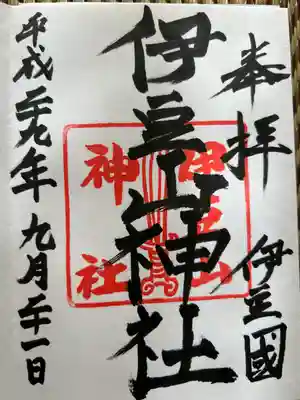 奉拝
伊豆國
伊豆山神社
伊豆山
神社
平成二十九年九月二十一日